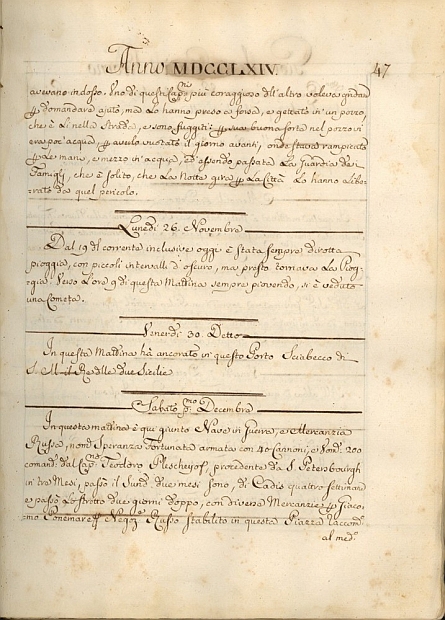 Anno MDCCLXIV.
47
avevano indosso. Uno di questi Cap.ni più coraggioso dell'altro voleva gridar
p domandare ajuto, ma lo hanno preso a forsa, e gettato in un pozzo,
che è li nella Strada, e sono fuggiti; p sua buona sorte nel pozzo vi
era poc'acqua p averlo vuotato il giorno avanti, onde stava rampicato
p le mani, e mezzo in acqua, ed essendo passata La Guardia de i
Famigli, che è solito, che La Notte gira p La Città Lo hanno Libe-
rato da quel pericolo.
Lunedì 26. Novembra
Dal 19 di corrente inclusive oggi è stata sempre dirotta
pioggia, con piccoli intervalli d'oscuro, ma presto tornava La Piog-
gia. Verso L'ora 9 di questa Mattina sempre piovendo, si è veduto
una Cometa.
Venerdì 30. Detto
In questa Mattina hà ancorato in questo Porto Sciabecco di
S. M. il Rè delle due Sicilie
Sabato p.mo Decembra
In questa mattina è qui giunto Nave in Guerra, e Mercanzia
Russa, nom.a Speranza Fortunata armata con 40 Cannoni, e Pom. 200
comand. dal Cap.no Teodoro Pleschejof, procedente da S. Petersbourgh
in tre Mesi, passò il Sund due mesi sono, di Cadis quatro settimane
e passò Lo Stretto due giorni doppo, con diverse Mercanzie p Giaco-
mo Ponemareff Negoz. Russo stabilito in questa Piazza raccom.
al med.o